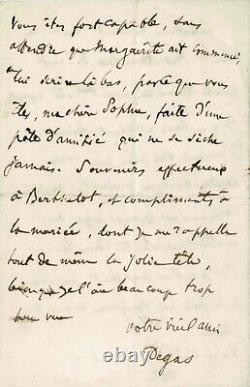 Vous êtes fort capable, sans
attendre que Marguerite ait commencé,
lui écrire là bas, parce que vous
êtes, ma chère Sophie, faite d'une
pâte d'amitié qui ne se sèche
jamais. Souvenirs affectueux
à Berthelot, et compliments à
la mariée, dont je me rappelle
tout de même la jolie tête,
bien que je l'ai beaucoup trop
peu vue
votre vieil ami
Degas